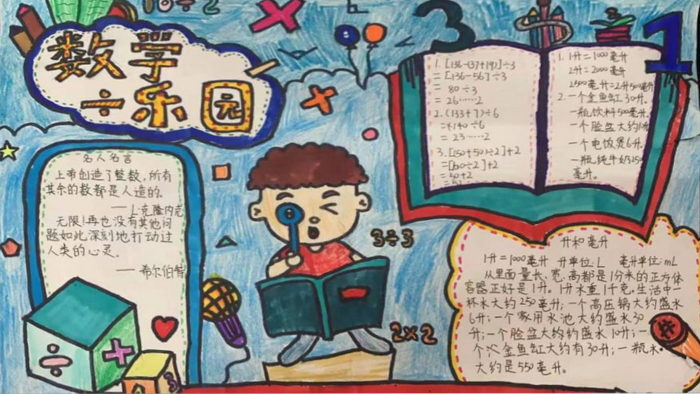 18÷2
3
1
数学
÷乐园
名人名言
上帝创造了整数,所有
其余的数都是人造的。
——L·克隆内克
无限!再也没有其他问
题如此深刻地打动过
人类的心灵。
——希尔伯特
1.[136-137+191]÷3
=[136-56]÷3
=80÷3
=26……2
2.(133+7)÷6
=140÷6
=23……2
3.[50+50÷2]+2
=[60÷2]+2
1. 1升=1000毫升
2升=2000毫升
2500毫升=2升500毫升
2.一个金鱼缸30升.
一瓶饮料500毫升.
一个脸盆大约
一个电饭煲6升.
一瓶纯牛奶
毫升.
3÷3
2×2
升和毫升
1升=1000毫升 升单位:L 毫升单位:mL
从里面量长、宽、高都是1分米的正方体
容器正好是1升。1升水重1千克,生活中一
杯水大约250毫升;一个高压锅大约盛水
6升;一个家用水池大约盛水30
升;一个脸盆大约盛水10升;一
个金鱼缸大约有30升;一瓶水
大约是550毫升。
÷
×
+
3